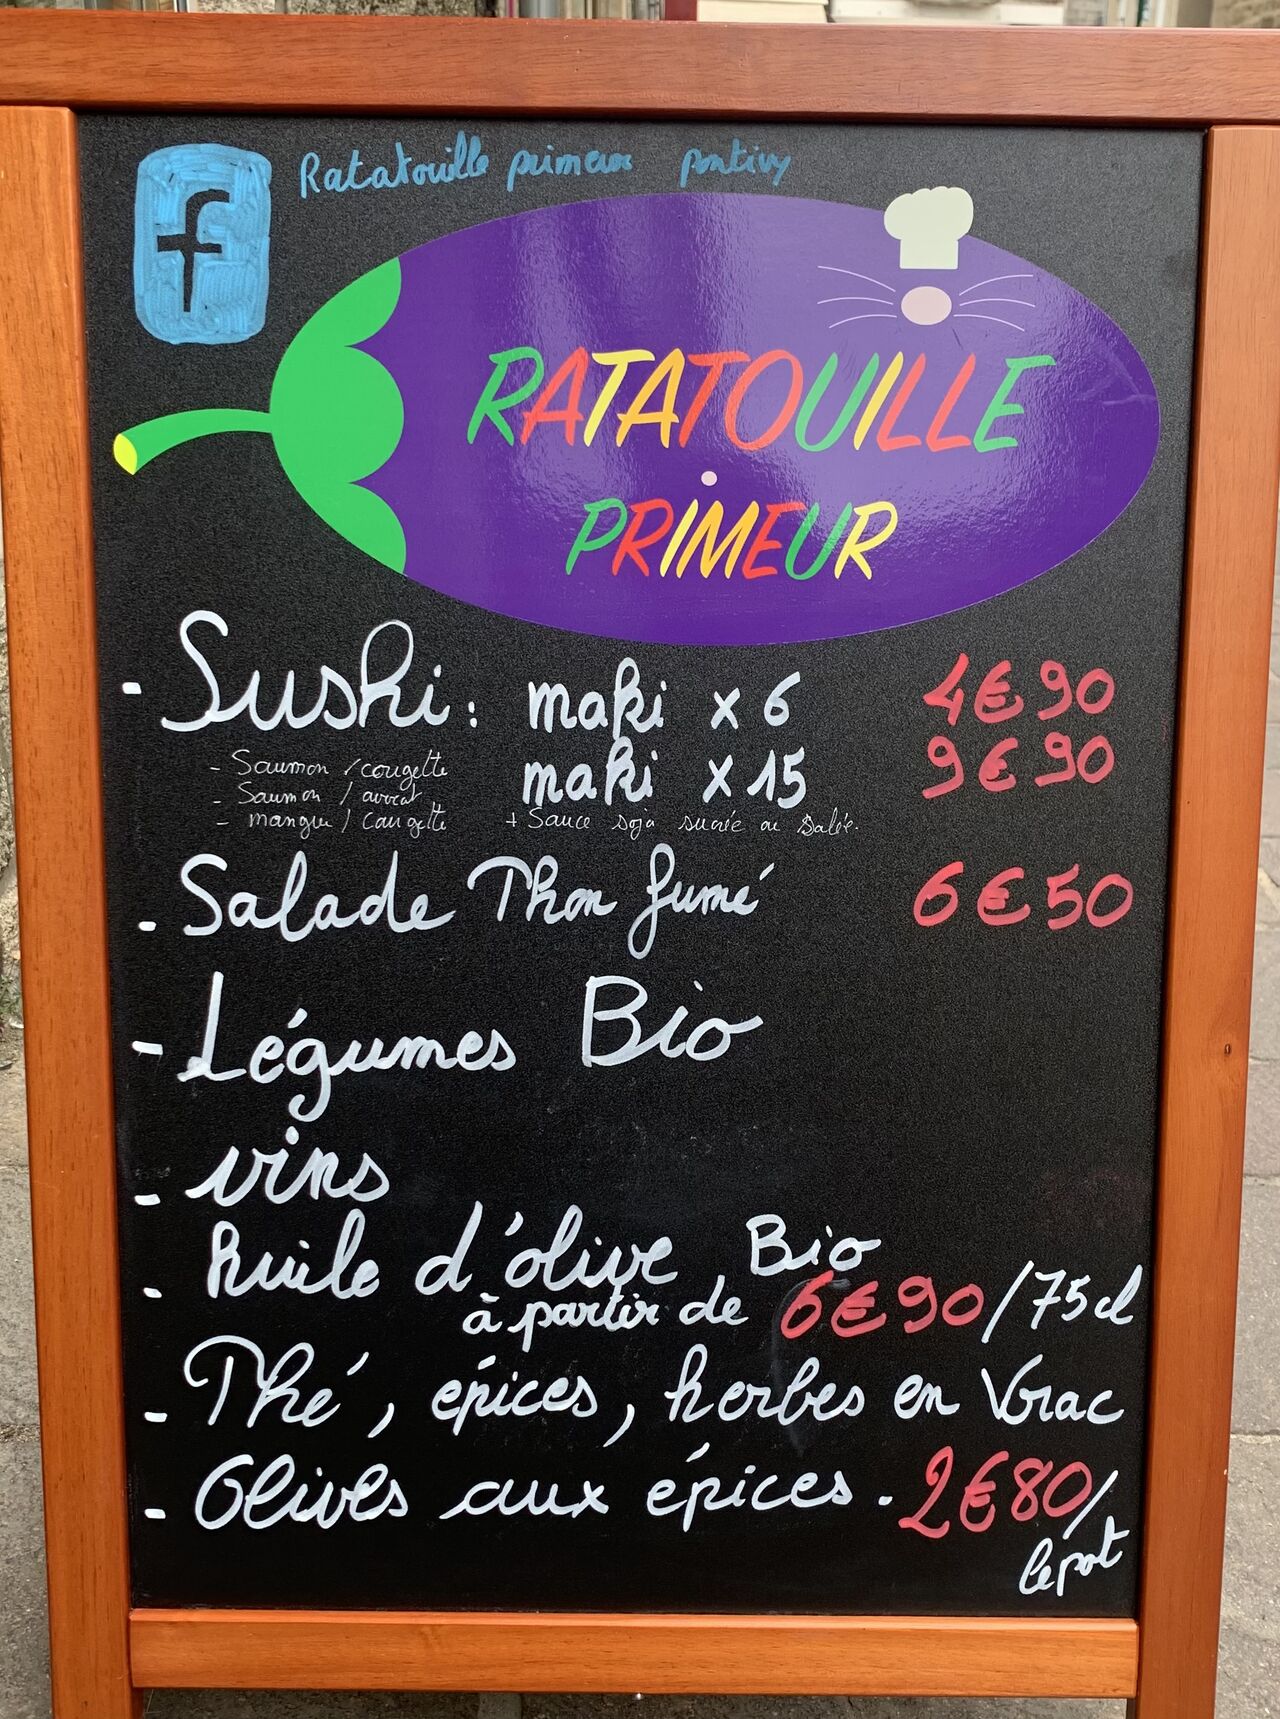 f Ratatouille primeur pontivy
RATATOUILLE
PRIMEUR
- Sushi : maki x 6 4€90
- Saumon / cougette maki x 15 9€90
- Saumon / avocat
- mangue / cougette + Sauce soja sucrée ou Salée.
- Salade Thon fumé 6€50
- Légumes Bio
- vins
- huile d'olive, Bio
à partir de 6€90/75cl
- Thé, épices, herbes en Vrac
- Olives aux épices. 2€80/
le pot